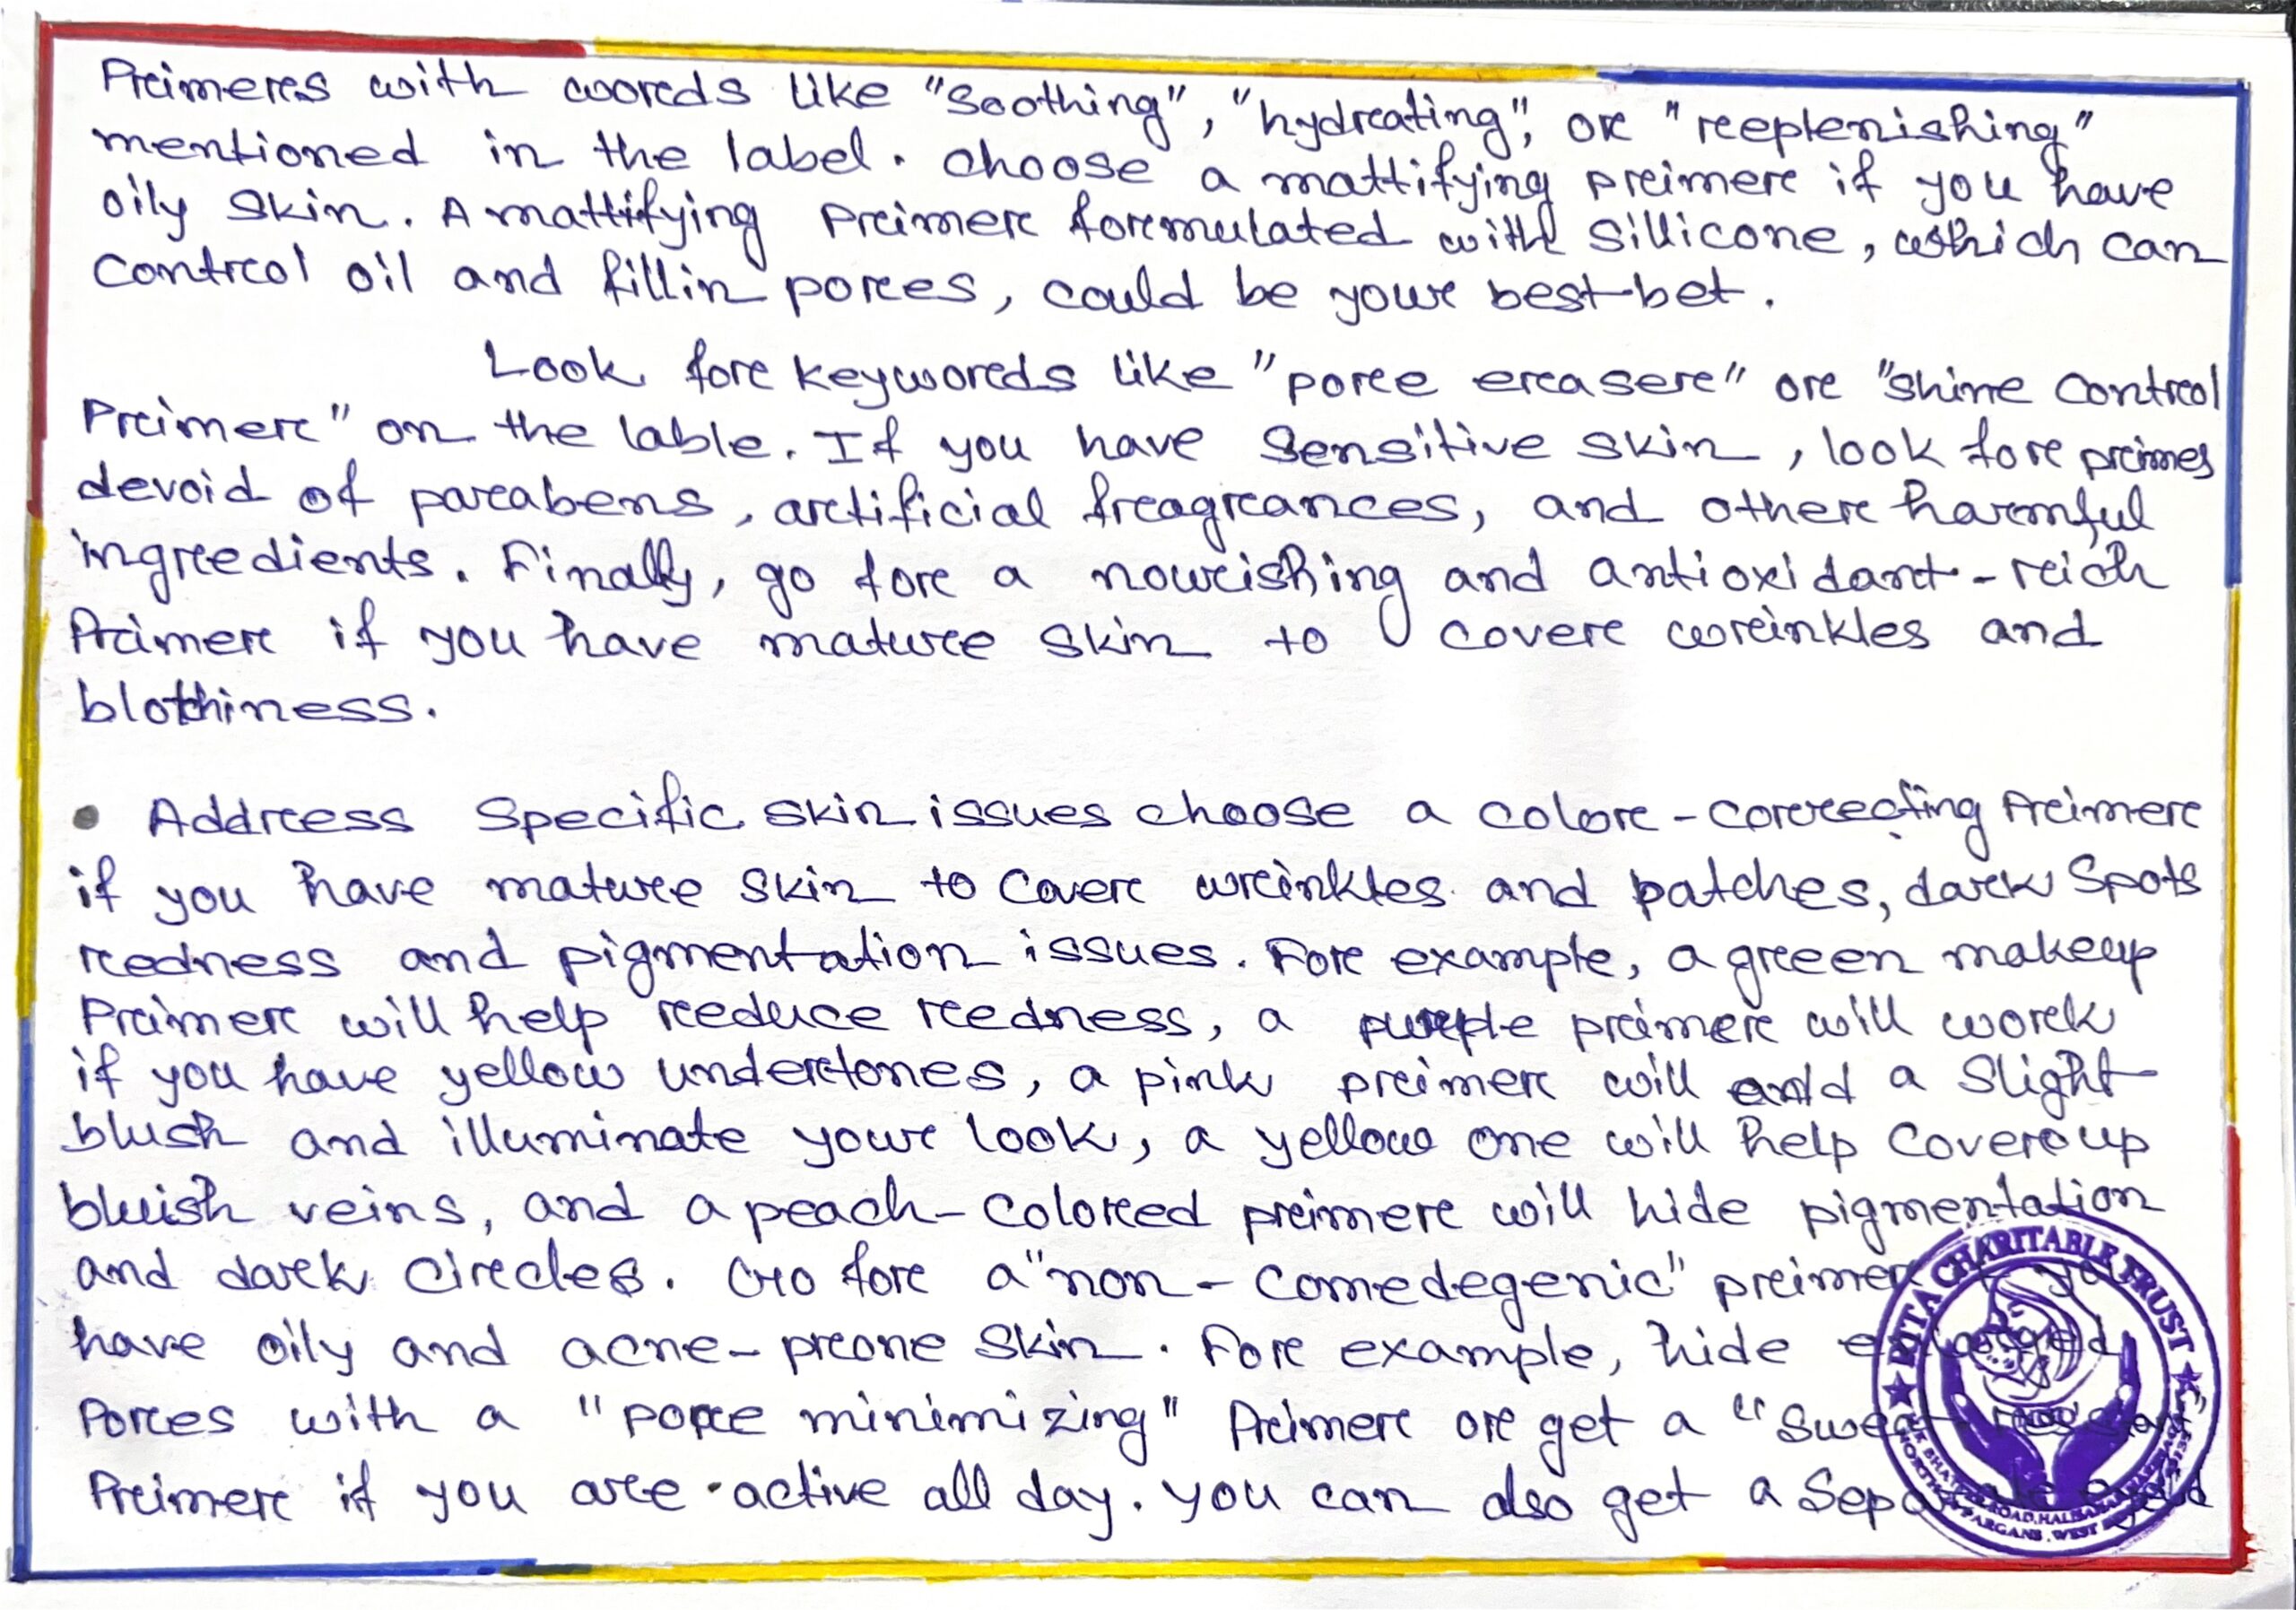 Primers with words like "Soothing", "hydrating", or "replenishing"
mentioned in the label. choose a mattifying primer if you have
oily skin. A mattifying Primer formulated with Sillicone, which can
Control oil and fillin pores, could be your best bet.
Look for keywords like "pore eraser" or "Shine Control
Primer" on the lable. If you have Sensitive skin, look for primes
devoid of parabens, artificial fragrances, and other harmful
ingredients. Finally, go for a nourishing and antioxidant-rich
Primer if you have mature skin to cover wrinkles and
blothiness.
• Address Specific skin issues choose a color-correcting Primer
if you have mature skin to Cover wrinkles and patches, dark Spots
redness and pigmentation issues. For example, a green makeup
Primer will help reduce redness, a purple primer will work
if you have yellow undertones, a pink primer will add a slight
blush and illuminate your look, a yellow one will help Cover up
bluish veins, and a peach-Colored primer will hide pigmentation
and dark Circles. Go for a "non-Comedegenic" primer if you
have oily and acne-prone skin. For example, hide enlarged
Pores with a "pore minimizing" Primer or get a "Sweat resistant"
Primer if you are active all day. you can also get a Separate
★ CHARITABLE TRUST ★